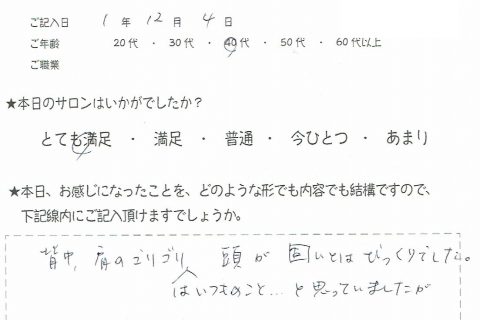 ご記入日 1 年 12 月 4 日
ご年齢 20代 ・ 30代 ・ 40代 ・ 50代 ・ 60代以上
ご職業
★本日のサロンはいかがでしたか？
とても満足 ・ 満足 ・ 普通 ・ 今ひとつ ・ あまり
★本日、お感じになったことを、どのような形でも内容でも結構ですので、
下記線内にご記入頂けますでしょうか。
背中、肩のゴリゴリ、頭が固いとはびっくりでした。
はいつものこと…と思っていましたが